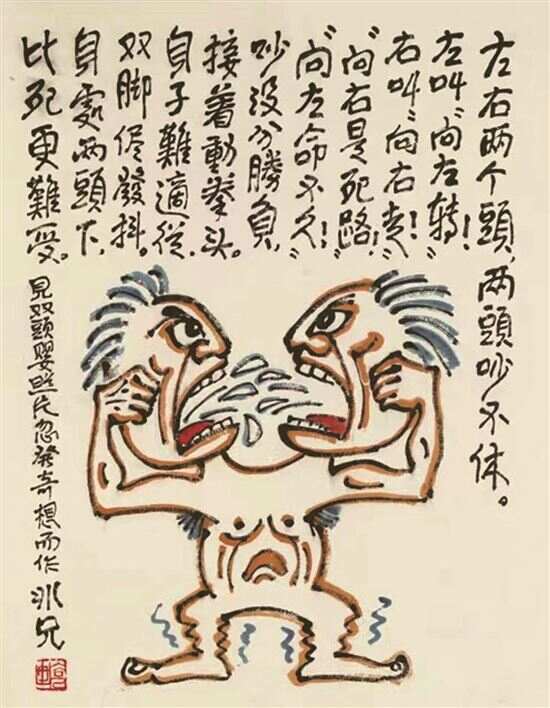 左右两个頭,两頭吵不休。
左叫“向左转!”
右叫“向右走!”
“向右是死路,”
“向左命不久!”
吵没分勝負,
接着動拳头。
身子難適從,
双脚侭發抖。
身處两頭下,
比死更難受。
見双頭嬰照片忽發奇想而作 冰兄